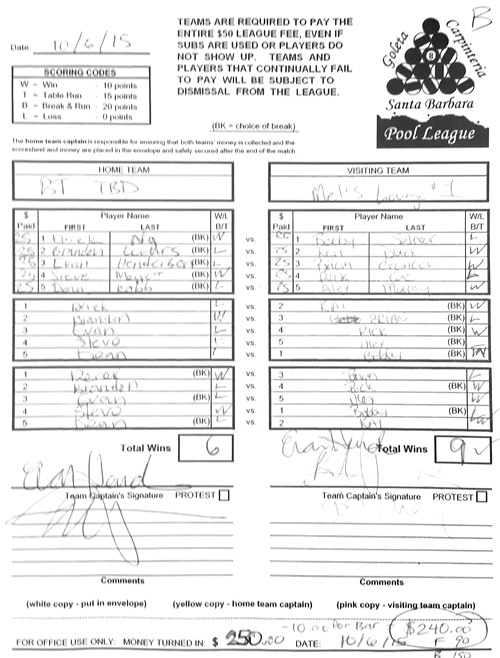 B
Date 10/6/15
TEAMS ARE REQUIRED TO PAY THE
ENTIRE $50 LEAGUE FEE, EVEN IF
SUBS ARE USED OR PLAYERS DO
NOT SHOW UP. TEAMS AND
PLAYERS THAT CONTINUALLY FAIL
TO PAY WILL BE SUBJECT TO
DISMISSAL FROM THE LEAGUE.
(BK = choice of break)
SCORING CODES
W = Win - 10 points
T = Table Run - 15 points
B = Break & Run - 20 points
L = Loss - 0 points
Goleta Carpinteria
Santa Barbara
Pool League
The home team captain is responsible for ensuring that both teams' money is collected and the
scoresheet and money are placed in the envelope and safely secured after the end of the match.
HOME TEAM
BT TBD
VISITING TEAM
Mel's Lounge #1
$ Paid Player Name FIRST LAST W/L B/T
$ Paid Player Name FIRST LAST W/L B/T
25 1 Derek Ng (BK) W vs. 25 1 Bobby L
25 2 Brandon (BK) L vs. 25 2 Kai W
3 Evan Henderson (BK) L vs. 25 3 Brian W
25 4 Steve (BK) W vs. 25 4 Rick L
25 5 Dean Robb (BK) L vs. 25 5 Alex W
1 Derek L vs. 2 Kai (BK) W
2 Brandon W vs. 3 BRIAN (BK) L
3 Evan L vs. 4 Rick (BK) W
4 Steve vs. 5 Alex (BK)
5 Dean vs. 1 Bobby (BK) W
1 Derek (BK) W vs. 3 L
2 Brandon L vs. 4 Rick (BK) W
3 Evan (BK) L vs. 5 Alex W
4 Steve W vs. 1 Bobby (BK) L
5 Dean (BK) L vs. 2 Kai W
Total Wins 6
Total Wins 9
Team Captain's Signature PROTEST
Team Captain's Signature PROTEST
Comments
Comments
(white copy - put in envelope) (yellow copy - home team captain) (pink copy - visiting team captain)
-10.00 for Bar
$240.00
FOR OFFICE USE ONLY: MONEY TURNED IN: $ 250.00 DATE: 10/6/15
F 90
B 150